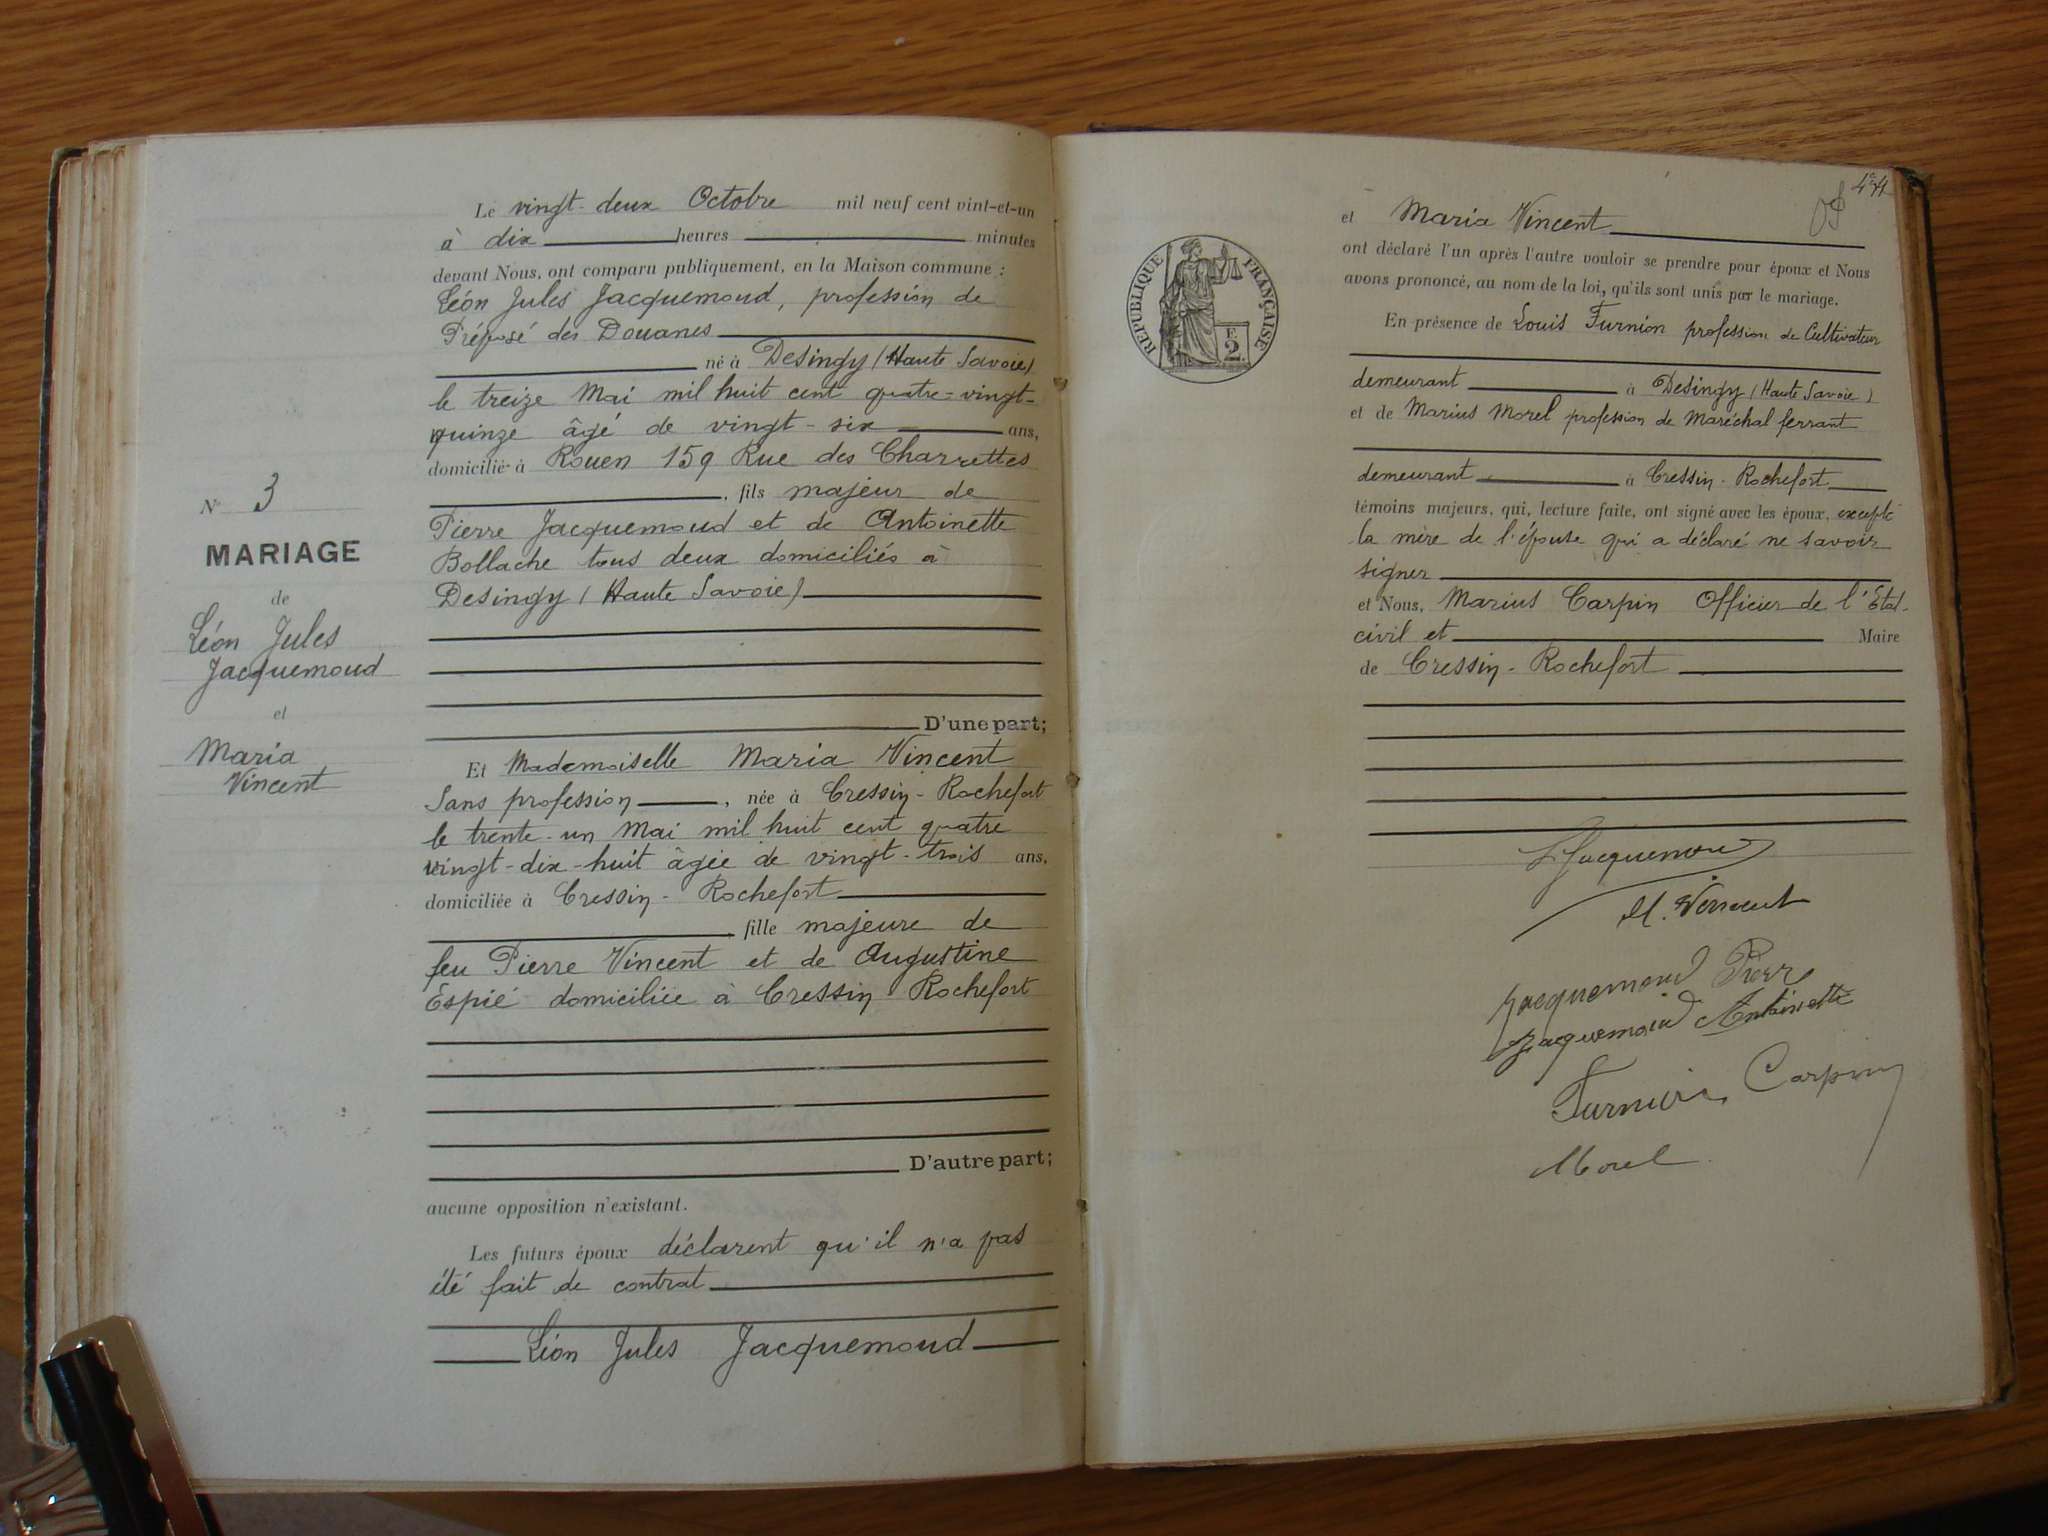 Le vingt-deux Octobre mil neuf cent vint-et-un
à dix heures minutes
devant Nous, ont comparu publiquement, en la Maison commune :
Léon Jules Jacquemoud, profession de
Préposé des Douanes
né à Desingy (Haute Savoie)
le treize Mai mil huit cent quatre-vingt-
quinze âgé de vingt-six ans,
domicilié à Rouen 159 Rue des Charrettes
, fils majeur de
Pierre Jacquemoud et de Antoinette
Bollache tous deux domiciliés à
Desingy (Haute Savoie)
D'une part;
N° 3
MARIAGE
de
Léon Jules
Jacquemoud
et
Maria
Vincent
Et Mademoiselle Maria Vincent
Sans profession , née à Cressin-Rochefort
le trente-un Mai mil huit cent quatre
vingt-dix-huit âgée de vingt-trois ans,
domiciliée à Cressin-Rochefort
fille majeure de
feu Pierre Vincent et de Augustine
Espié domiciliée à Cressin Rochefort
D'autre part;
aucune opposition n'existant.
Les futurs époux déclarent qu'il n'a pas
été fait de contrat
Léon Jules Jacquemoud
RÉPUBLIQUE FRANÇAISE
F.
2.
et Maria Vincent
ont déclaré l'un après l'autre vouloir se prendre pour époux et Nous
avons prononcé, au nom de la loi, qu'ils sont unis par le mariage.
En présence de Louis Furnion profession de Cultivateur
demeurant à Desingy (Haute Savoie)
et de Marius Morel profession de Maréchal ferrant
demeurant à Cressin-Rochefort
témoins majeurs, qui, lecture faite, ont signé avec les époux, excepté
la mère de l'épouse qui a déclaré ne savoir
signer
et Nous, Marius Carpin Officier de l'Etat-
civil et Maire
de Cressin-Rochefort
Jacquemoud
M. Vincent
Jacquemoud Pierre
Jacquemoud Antoinette
Furnion Carpin
Morel